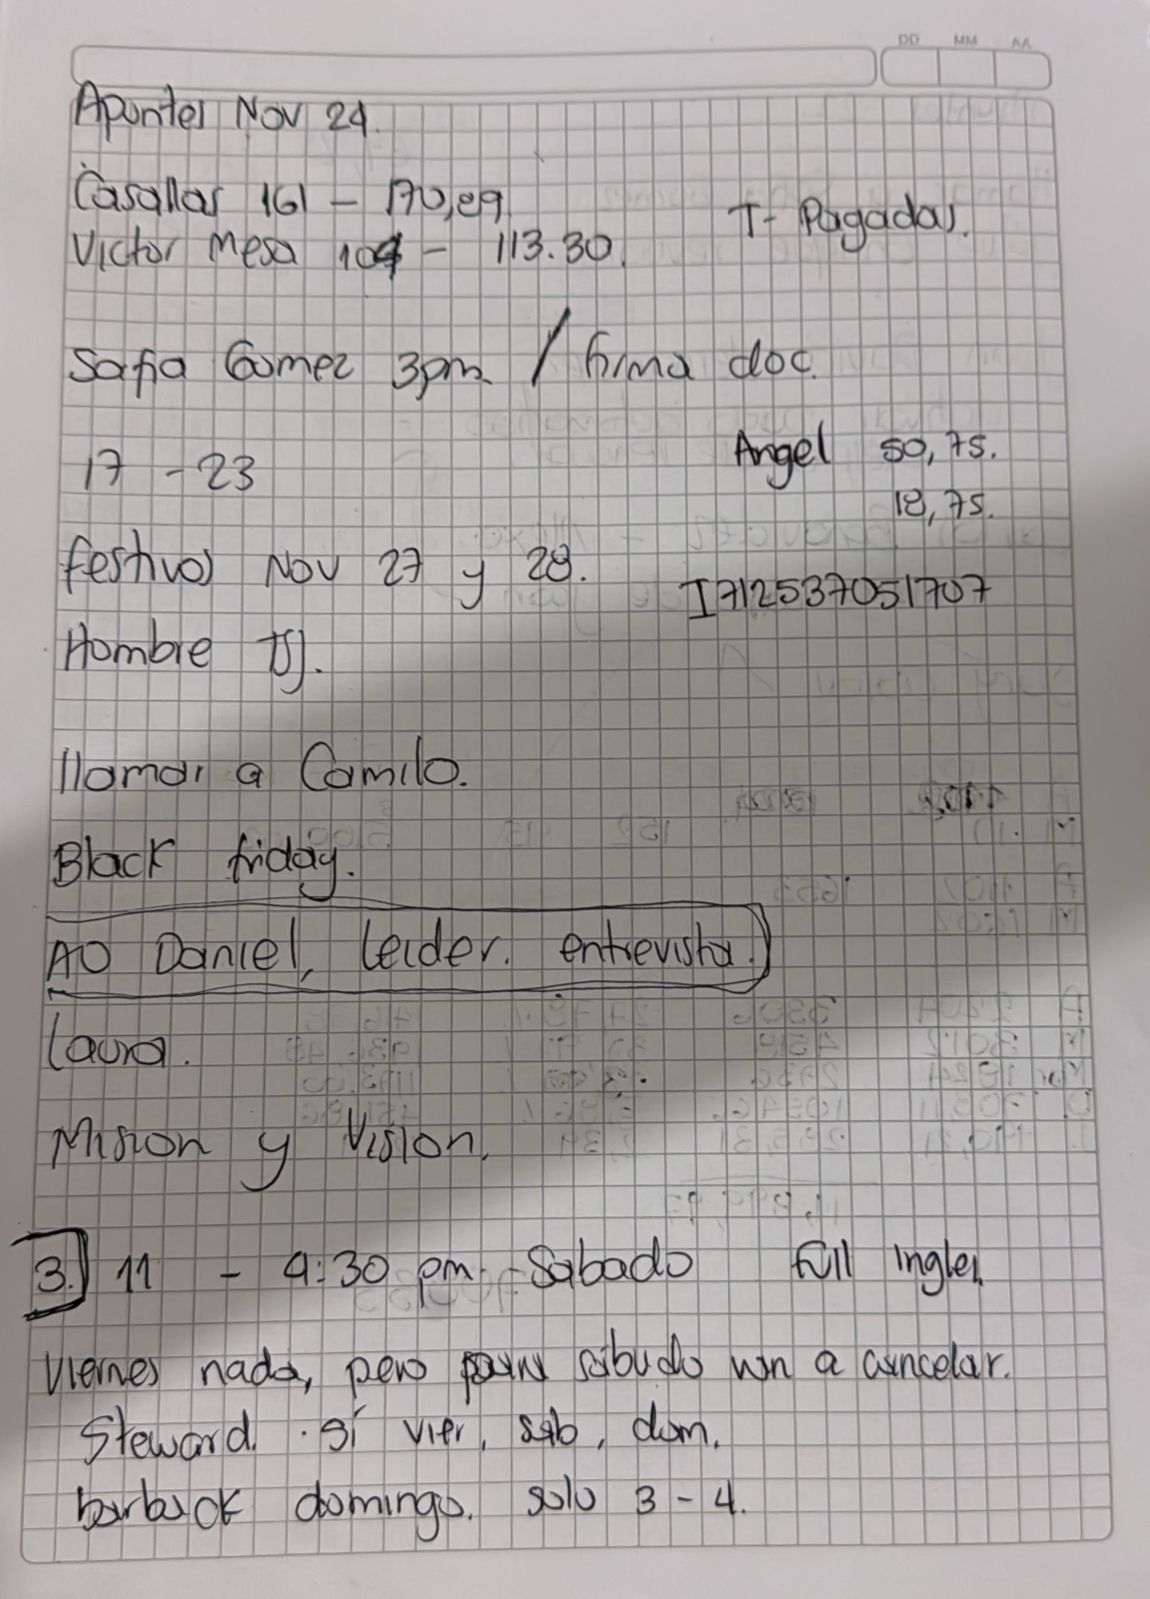 DD MM AA
Apuntes Nov 24.
Casallas 161 - 170,89.
Victor Mesa 104 - 113.30.
T- Pagadas.
Sofia Gomez 3pm. / firma doc.
17 - 23
Angel 50,75.
18,75.
festivos Nov 27 y 28.
I712537051707
Hombre TSJ.
llamar a Camilo.
Black friday.
AO Daniel, Leider. entrevista.
Laura.
Mision y Vision.
3. 11 - 4:30 pm. - Sabado full ingles
Viernes nada, pero para sabado van a cancelar.
Steward. · Sí vier, sab, dom.
barback domingo. solo 3 - 4.